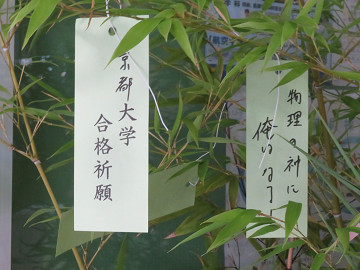 京都大学
合格祈願
物理の神に
俺はなる